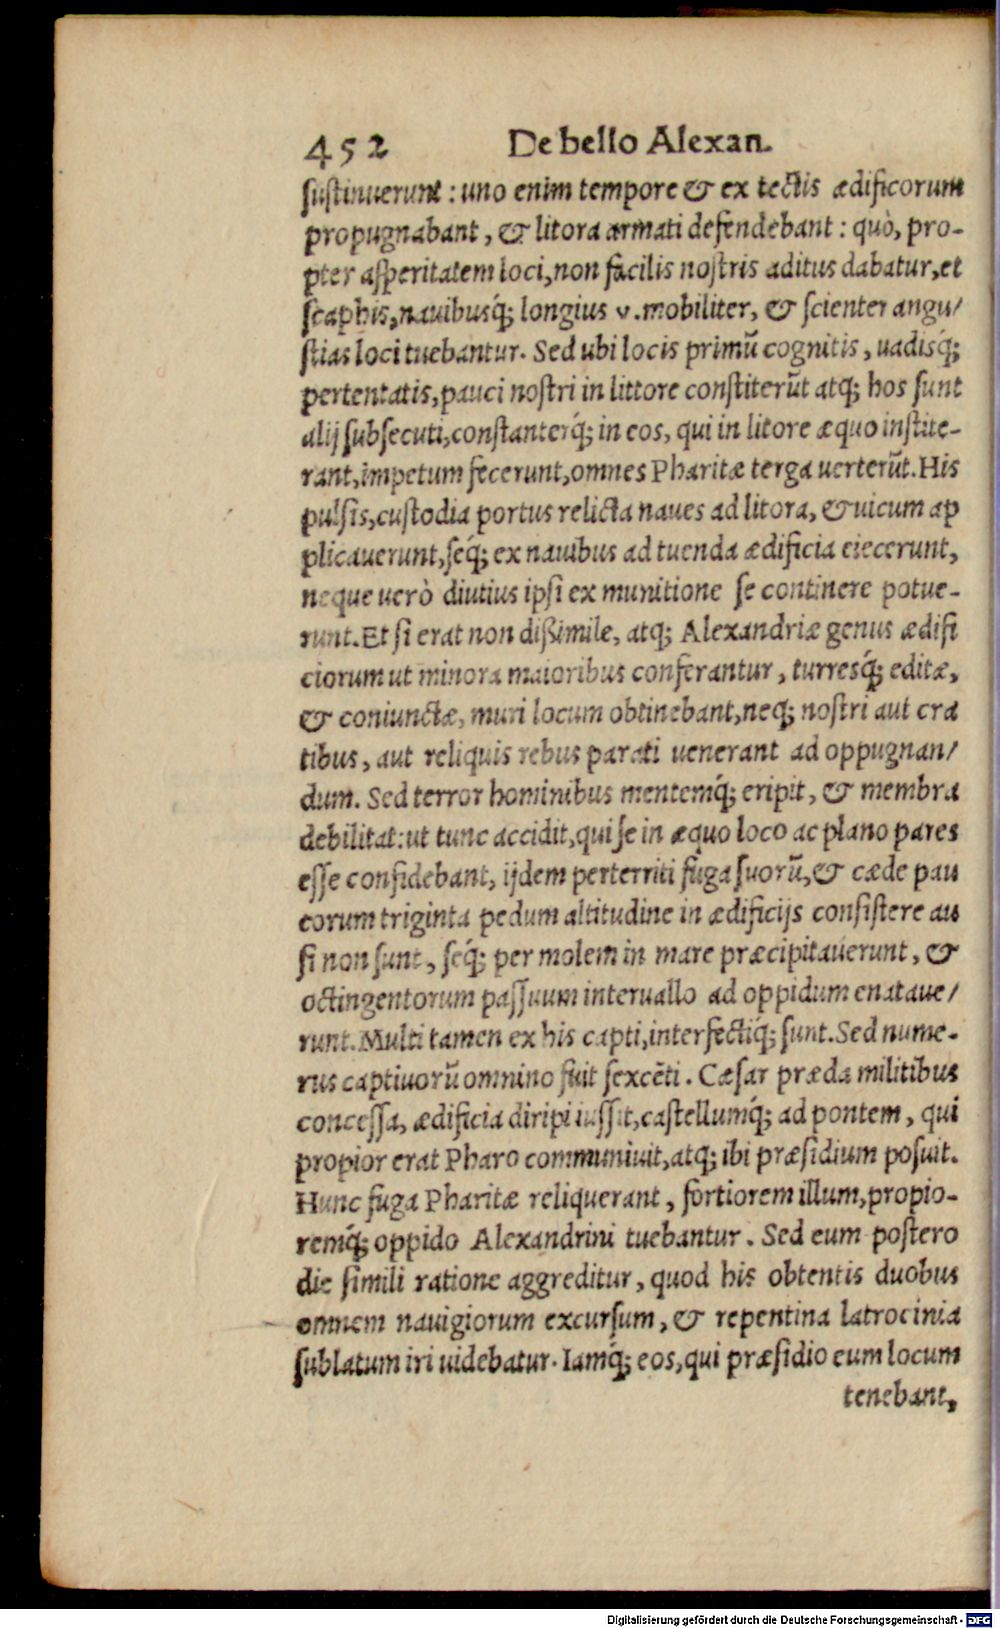 452 De bello Alexan.
sustinuerunt : uno enim tempore & ex tectis ædificorum
propugnabant, & litora armati defendebant : quò, pro-
pter asperitatem loci, non facilis nostris aditus dabatur, et
scaphis, nauibusq́; longius v. mobiliter, & scienter angu/
stias loci tuebantur. Sed ubi locis primũ cognitis, uadisq́;
pertentatis, pauci nostri in littore constiterũt atq; hos sunt
alij subsecuti, constanterq́; in eos, qui in litore æquo institе-
rant, impetum fecerunt, omnes Pharitæ terga uerterũt. His
pulsis, custodia portus relicta naues ad litora, & uicum ap
plicauerunt, seq́; ex nauibus ad tuenda ædificia eiecerunt,
neque uerò diutius ipsi ex munitione se continere potue-
runt. Et si erat non dißimile, atq; Alexandriæ genus ædifi
ciorum ut minora maioribus conferantur, turresq́; editæ,
& coniunctæ, muri locum obtinebant, neq; nostri aut cra
tibus, aut reliquis rebus parati uenerant ad oppugnan/
dum. Sed terror hominibus mentemq́; eripit, & membra
debilitat: ut tunc accidit, qui se in æquo loco ac plano pares
esse confidebant, ijdem perterriti fuga suorũ, & cæde pau
corum triginta pedum altitudine in ædificijs consistere au
si non sunt, seq́; per molem in mare præcipitauerunt, &
octingentorum passuum interuallo ad oppidum enataue/
runt. Multi tamen ex his capti, interfectiq́; sunt. Sed nume-
rus captiuorũ omnino fuit sexcẽti. Cæsar præda militibus
concessa, ædificia diripi iussit, castellumq́; ad pontem, qui
propior erat Pharo communiuit, atq; ibi præsidium posuit.
Hunc fuga Pharitæ reliquerant, fortiorem illum, propio-
remq́; oppido Alexandrini tuebantur. Sed eum postero
die simili ratione aggreditur, quod his obtentis duobus
omnem nauigiorum excursum, & repentina latrocinia
sublatum iri uidebatur. Iamq́; eos, qui præsidio eum locum
tenebant,
Digitalisierung gefördert durch die Deutsche Forschungsgemeinschaft - DFG